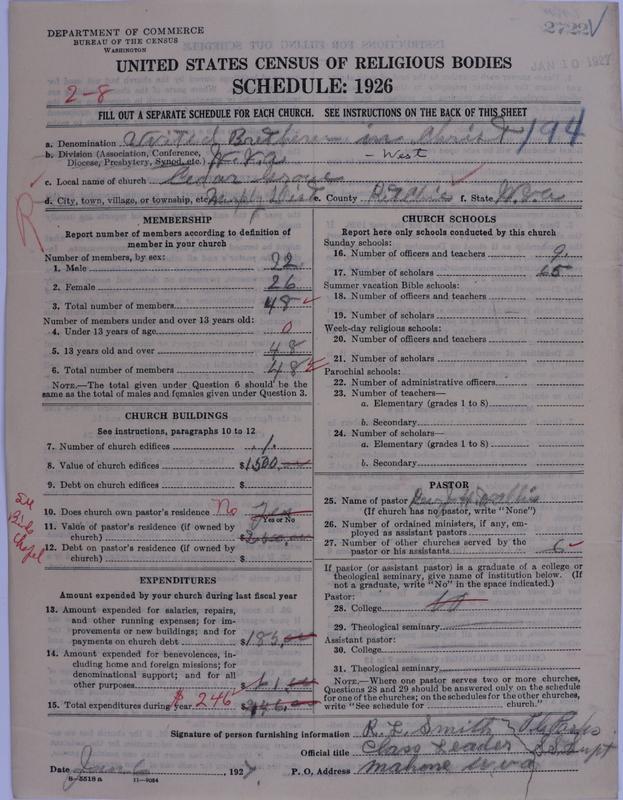 DEPARTMENT OF COMMERCE
BUREAU OF THE CENSUS
WASHINGTON
UNITED STATES CENSUS OF RELIGIOUS BODIES
SCHEDULE: 1926
2-8
FILL OUT A SEPARATE SCHEDULE FOR EACH CHURCH. SEE INSTRUCTIONS ON THE BACK OF THIS SHEET
a. Denomination United Brethren in Christ 194
b. Division (Association, Conference, Diocese, Presbytery, Synod, etc.) W. Va - West
c. Local name of church Cedar Grove
d. City, town, village, or township, etc. Murphy Dist e. County Ritchie f. State W. Va
R
MEMBERSHIP
Report number of members according to definition of
member in your church
Number of members, by sex:
1. Male 22
2. Female 26
3. Total number of members 48
Number of members under and over 13 years old:
4. Under 13 years of age 0
5. 13 years old and over 48
6. Total number of members 48
NOTE.—The total given under Question 6 should be the
same as the total of males and females given under Question 3.
CHURCH BUILDINGS
See instructions, paragraphs 10 to 12
7. Number of church edifices 1
8. Value of church edifices $1,500
9. Debt on church edifices $
10. Does church own pastor's residence No Yes
Yes or No
11. Value of pastor's residence (if owned by
church) $
12. Debt on pastor's residence (if owned by
church) $
Chapel
EXPENDITURES
Amount expended by your church during last fiscal year
13. Amount expended for salaries, repairs,
and other running expenses; for im-
provements or new buildings; and for
payments on church debt $185
14. Amount expended for benevolences, in-
cluding home and foreign missions; for
denominational support; and for all
other purposes $61
15. Total expenditures during year $246 $246
CHURCH SCHOOLS
Report here only schools conducted by this church
Sunday schools:
16. Number of officers and teachers 9
17. Number of scholars 65
Summer vacation Bible schools:
18. Number of officers and teachers
19. Number of scholars
Week-day religious schools:
20. Number of officers and teachers
21. Number of scholars
Parochial schools:
22. Number of administrative officers
23. Number of teachers—
a. Elementary (grades 1 to 8)
b. Secondary
24. Number of scholars—
a. Elementary (grades 1 to 8)
b. Secondary
PASTOR
25. Name of pastor
(If church has no pastor, write "None")
26. Number of ordained ministers, if any, em-
ployed as assistant pastors
27. Number of other churches served by the
pastor or his assistants 6
If pastor (or assistant pastor) is a graduate of a college or
theological seminary, give name of institution below. (If
not a graduate, write "No" in the space indicated.)
Pastor:
28. College
29. Theological seminary
Assistant pastor:
30. College
31. Theological seminary
NOTE.—Where one pastor serves two or more churches,
Questions 28 and 29 should be answered only on the schedule
for one of the churches; on the schedules for the other churches,
write "See schedule for church."
Signature of person furnishing information R. L. Smith
Official title Class Leader S.S. Supt
Date Jan 6, 1927 P. O. Address Mahone W. Va
8—5518a 11—9084